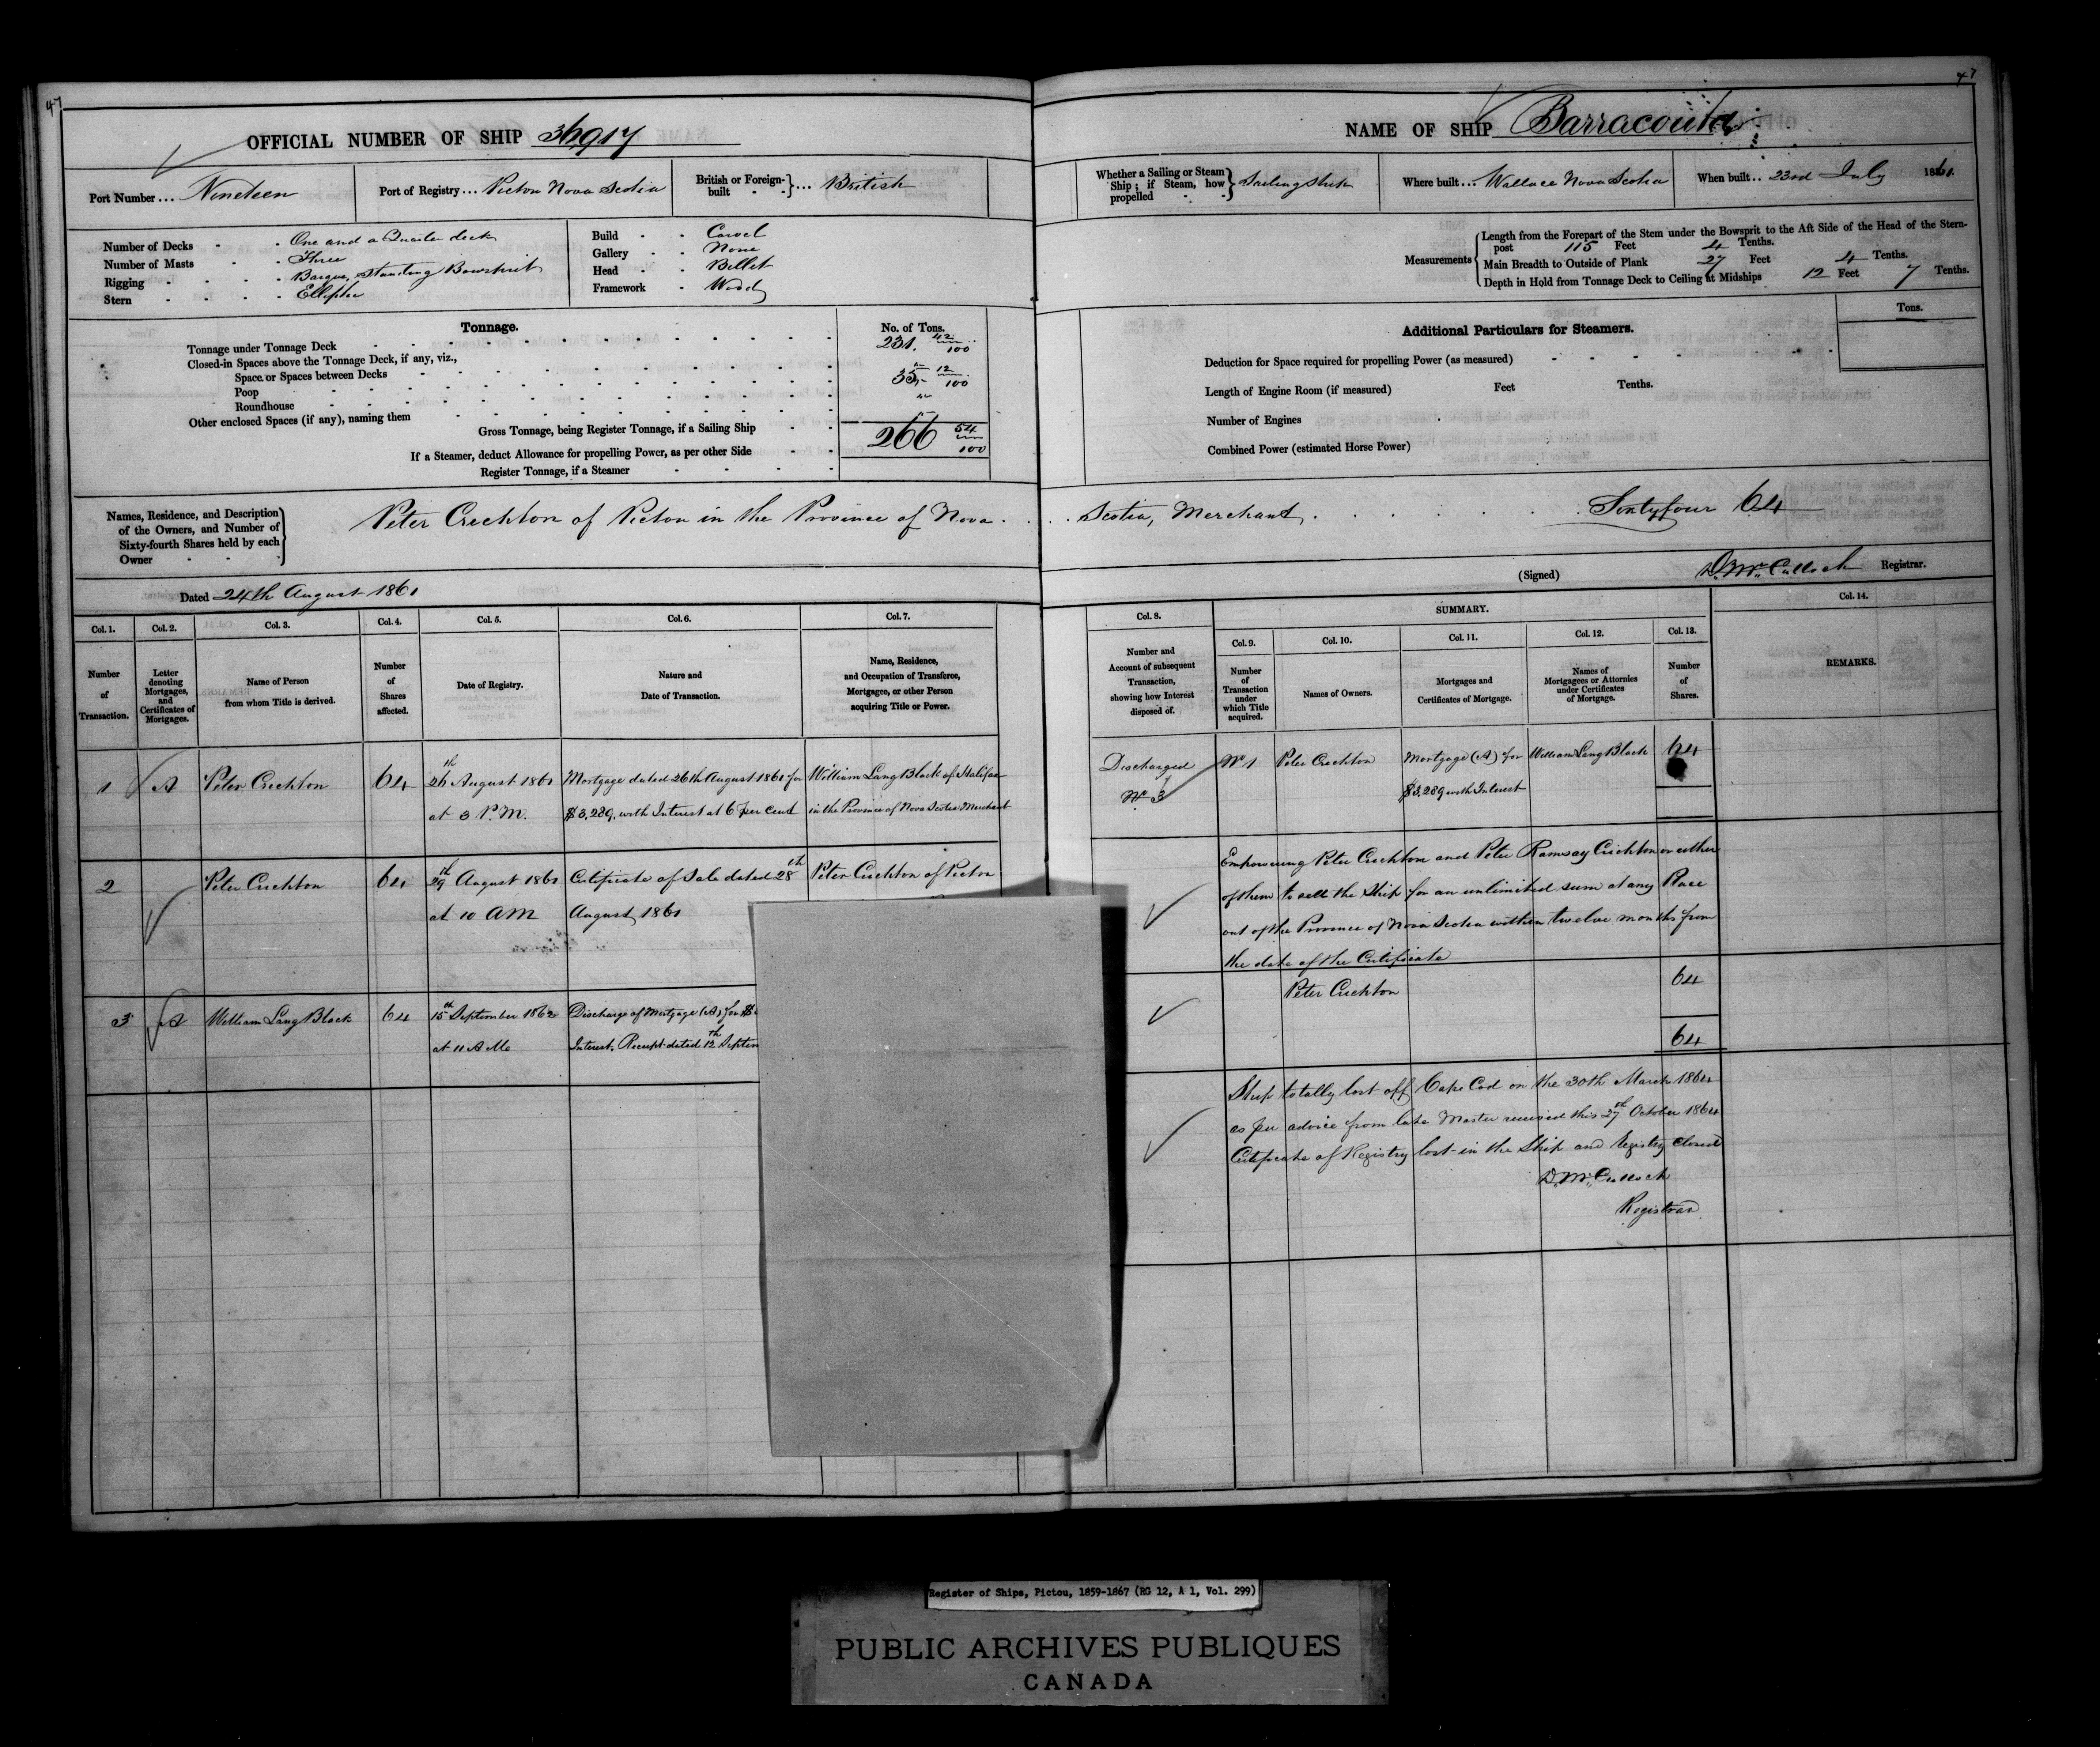 47
OFFICIAL NUMBER OF SHIP 36,917
Port Number ... Nineteen
Port of Registry ... Pictou Nova Scotia
British or Foreign-built - - } ... British
Number of Decks - - One and a Quarter deck
Number of Masts - - Three
Rigging - - - - Barque, Standing Bowsprit
Stern - - - - Elliptic
Build - - Carvel
Gallery - - None
Head - - Billet
Framework - Wood
Tonnage.
No. of Tons.
Tonnage under Tonnage Deck 231. 42/100
Closed-in Spaces above the Tonnage Deck, if any, viz.,
Space or Spaces between Decks
Poop 35. 12/100
Roundhouse
Other enclosed Spaces (if any), naming them
Gross Tonnage, being Register Tonnage, if a Sailing Ship 266 54/100
If a Steamer, deduct Allowance for propelling Power, as per other Side
Register Tonnage, if a Steamer
Names, Residence, and Description of the Owners, and Number of Sixty-fourth Shares held by each Owner
Peter Crichton of Pictou in the Province of Nova
Dated 24th August 1861
Col. 1. Col. 2. Col. 3. Col. 4. Col. 5. Col. 6. Col. 7.
Number of Transaction.
Letter denoting Mortgages, and Certificates of Mortgages.
Name of Person from whom Title is derived.
Number of Shares affected.
Date of Registry.
Nature and Date of Transaction.
Name, Residence, and Occupation of Transferee, Mortgagee, or other Person acquiring Title or Power.
1 A Peter Crichton 64 26th August 1861 Mortgage dated 26th August 1861 for William Lang Black of Halifax
at 3 P.M. $3,289, with Interest at 6 per Cent in the Province of Nova Scotia Merchant
2 Peter Crichton 64 29th August 1861 Certificate of Sale dated 28th Peter Crichton of Pictou
at 10 AM August 1861
3 A William Lang Black 64 15th September 1862 Discharge of Mortgage (A) for $
at 11 A Mo Interest. Receipt dated 12th Septem
47
NAME OF SHIP Barracouta
Whether a Sailing or Steam Ship; if Steam, how propelled - - } Sailing Ship
Where built ... Wallace Nova Scotia
When built .. 23rd July 1861.
Measurements
Length from the Forepart of the Stem under the Bowsprit to the Aft Side of the Head of the Stern-
post 115 Feet 4 Tenths.
Main Breadth to Outside of Plank 27 Feet 4 Tenths.
Depth in Hold from Tonnage Deck to Ceiling at Midships 12 Feet 7 Tenths.
Additional Particulars for Steamers.
Tons.
Deduction for Space required for propelling Power (as measured)
Length of Engine Room (if measured) Feet Tenths.
Number of Engines
Combined Power (estimated Horse Power)
Scotia, Merchant, Sixtyfour 64
(Signed) D. McCulloch Registrar.
Col. 8. SUMMARY. Col. 14.
Col. 9. Col. 10. Col. 11. Col. 12. Col. 13.
Number and Account of subsequent Transaction, showing how Interest disposed of.
Number of Transaction under which Title acquired.
Names of Owners.
Mortgages and Certificates of Mortgage.
Names of Mortgagees or Attornies under Certificates of Mortgage.
Number of Shares.
REMARKS.
Discharged No 1 Peter Crichton Mortgage (A) for William Lang Black 64
No 3 $3,289 with Interest
Empowering Peter Crichton and Peter Ramsay Crichton or either
of them to sell the Ship for an unlimited sum at any Place
out of the Province of Nova Scotia within twelve months from
the date of the Certificate
Peter Crichton 64
64
Ship totally lost off Cape Cod on the 30th March 1864
as per advice from late Master received this 27th October 1864
Certificate of Registry lost in the Ship and Registry closed
D. McCulloch
Registrar
Register of Ships, Pictou, 1859-1867 (RG 12, A 1, Vol. 299)
PUBLIC ARCHIVES PUBLIQUES
CANADA